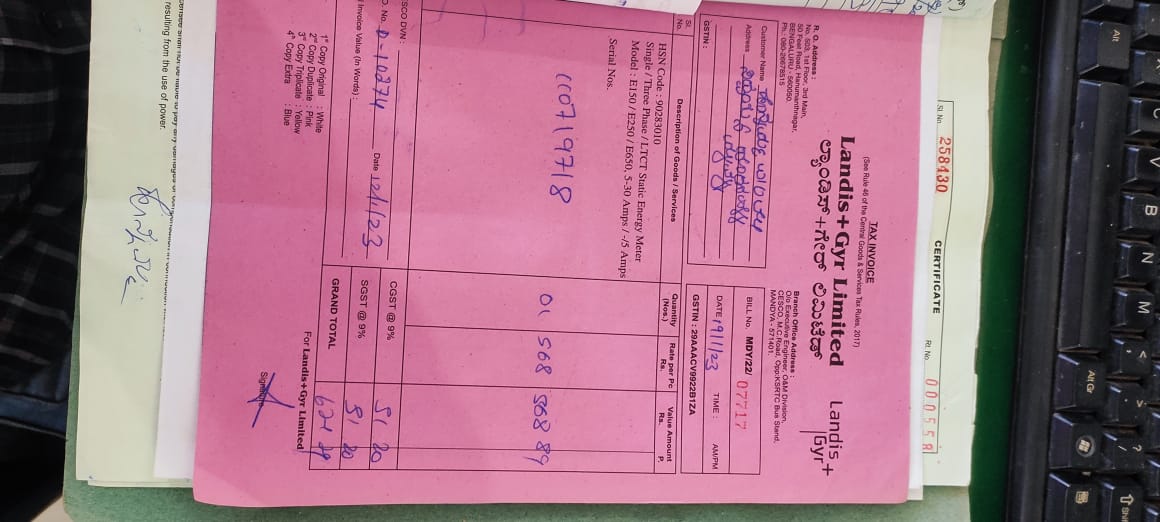 Sl. No. 258430
CERTIFICATE
Rt. No. 000558
TAX INVOICE
(See Rule 46 of the Central Goods & Services Tax Rules, 2017)
Landis+Gyr Limited
ಲ್ಯಾಂಡಿಸ್+ಗೇರ್ ಲಿಮಿಟೆಡ್
Landis+
Gyr
R. O. Address :
No. 503, 1st Floor, 3rd Main,
50 Feet Road, Hanumanthnagar,
BENGALURU - 560050.
Ph: 080-26678515
Branch Office Address :
O/o Executive Engineer, O&M Division,
CESCO, M.C Road, Opp:KSRTC Bus Stand,
MANDYA - 571401.
Customer Name
Address
BILL No. MDY/22/ 07717
DATE 19/1/23 TIME : AM/PM
GSTIN :
GSTIN : 29AAACV9922B1ZA
Sl. No. Description of Goods / Services Quantity (Nos.) Rate per Pc Rs. Value Amount Rs. P.
HSN Code : 90283010
Single / Three Phase / LTCT Static Energy Meter
Model : E150 / E250 / E650, 5-30 Amps / -/5 Amps
Serial Nos.
CC0719718 01 568 568 89
SCO DVN :
CGST @ 9% 51 20
O. No. D-10274 Date 12/1/23
SGST @ 9% 51 20
Invoice Value (In Words) :
GRAND TOTAL 671 29
1st Copy Original : White
2nd Copy Duplicate : Pink
3rd Copy Triplicate : Yellow
4th Copy Extra : Blue
For Landis+Gyr Limited
Signature
resulting from the use of power.
Alt
B
N
M
Alt Gr